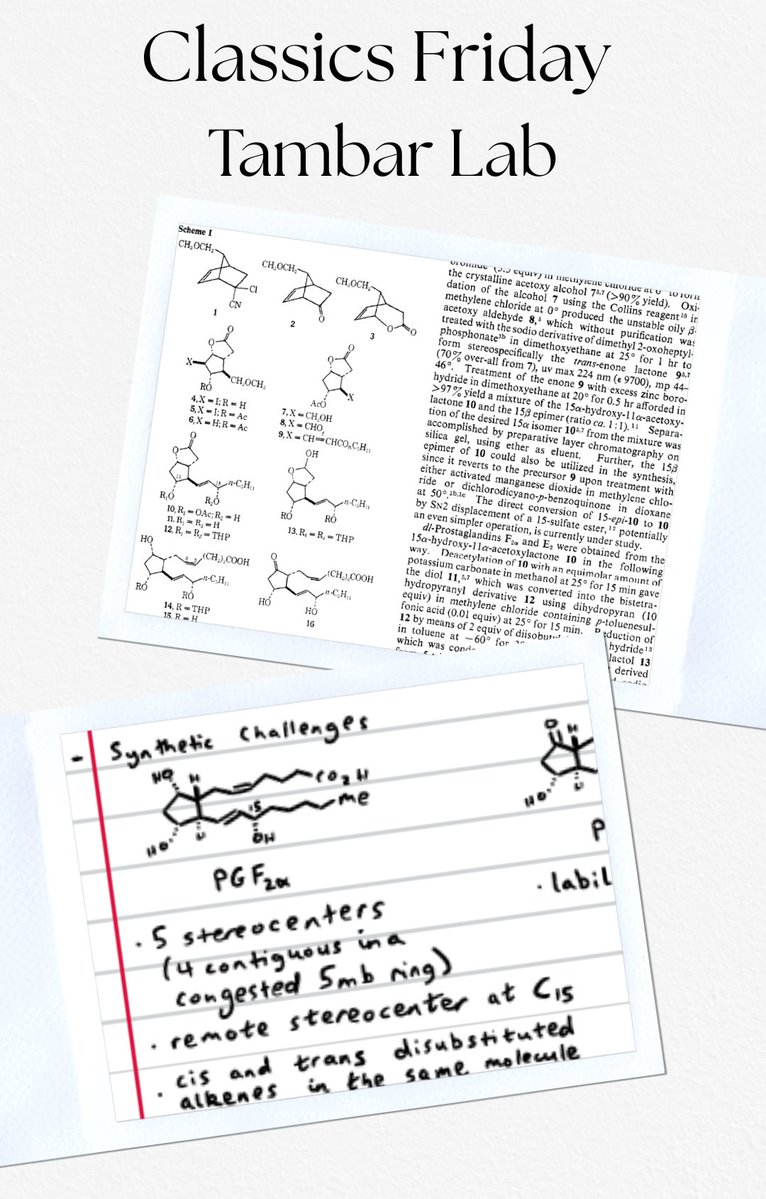 Classics Friday
Tambar Lab
Scheme I
CH₃OCH₂
Cl
CN
1
CH₃OCH₂
O
2
CH₃OCH₂
O
O
3
O
O
X
RO
CH₂OCH₃
4, X = I; R = H
5, X = I; R = Ac
6, X = H; R = Ac
O
O
AcO
X
7, X = CH₂OH
8, X = CHO
9, X = CH=CHCOC₅H₁₁
O
O
R₁O
R₂O
n-C₅H₁₁
10, R₁ = OAc; R₂ = H
11, R₁ = R₂ = H
12, R₁ = R₂ = THP
OH
O
RO
RO
n-C₅H₁₁
13, R₁ = R₂ = THP
HO
(CH₂)₃COOH
n-C₅H₁₁
RO
RO
14, R = THP
15, R = H
O
(CH₂)₃COOH
n-C₅H₁₁
HO
HO
16
the crystalline acetoxy alcohol 7⁵,⁷ (>90% yield). Oxi-
dation of the alcohol 7 using the Collins reagent¹⁰ in
methylene chloride at 0° produced the unstable oily β-
acetoxy aldehyde 8,⁵ which without purification was
treated with the sodio derivative of dimethyl 2-oxoheptyl-
phosphonate²ᵇ in dimethoxyethane at 25° for 1 hr to
form stereospecifically the trans-enone lactone 9⁵,⁷
(70% over-all from 7), uv max 224 nm (ε 9700), mp 44-
46°. Treatment of the enone 9 with excess zinc boro-
hydride in dimethoxyethane at 20° for 0.5 hr afforded in
>97% yield a mixture of the 15α-hydroxy-11α-acetoxy-
lactone 10 and the 15β epimer (ratio ca. 1:1).¹¹ Separa-
tion of the desired 15α isomer 10⁵,⁷ from the mixture was
accomplished by preparative layer chromatography on
silica gel, using ether as eluent. Further, the 15β
epimer of 10 could also be utilized in the synthesis,
since it reverts to the precursor 9 upon treatment with
either activated manganese dioxide in methylene chlo-
ride or dichlorodicyano-p-benzoquinone in dioxane
at 50°.¹ᵇ,¹ᶜ The direct conversion of 15-epi-10 to 10
by SN2 displacement of a 15-sulfate ester,¹² potentially
an even simpler operation, is currently under study.
dl-Prostaglandins F₂α and E₂ were obtained from the
15α-hydroxy-11α-acetoxylactone 10 in the following
way. Deacetylation of 10 with an equimolar amount of
potassium carbonate in methanol at 25° for 15 min gave
the diol 11,⁵,⁷ which was converted into the bistetra-
hydropyranyl derivative 12 using dihydropyran (10
equiv) in methylene chloride containing p-toluenesul-
fonic acid (0.01 equiv) at 25° for 15 min. Reduction of
12 by means of 2 equiv of diisobutyl hydride¹³
in toluene at −60° for lactol 13
which was derived
- Synthetic Challenges
HO
H
CO₂H
15
Me
HO
H
OH
PGF₂α
O
H
HO
H
P
· labil
· 5 stereocenters
(4 contiguous in a
congested 5mb ring)
· remote stereocenter at C₁₅
· cis and trans disubstituted
alkenes in the same molecule